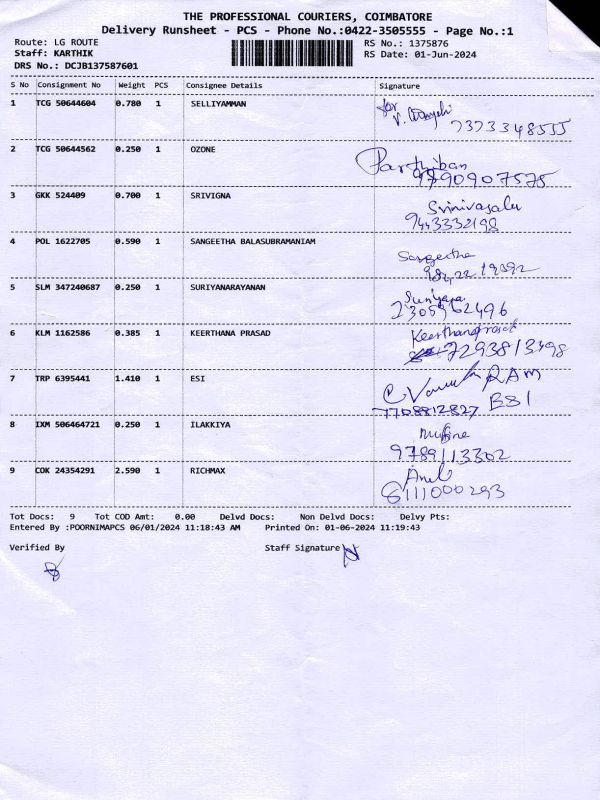 THE PROFESSIONAL COURIERS, COIMBATORE
Delivery Runsheet - PCS - Phone No.:0422-3505555 - Page No.:1
Route: LG ROUTE RS No.: 1375876
Staff: KARTHIK RS Date: 01-Jun-2024
DRS No.: DCJB137587601
S No Consignment No Weight PCS Consignee Details Signature
1 TCG 50644604 0.780 1 SELLIYAMMAN
for
7373348555
2 TCG 50644562 0.250 1 OZONE
Parthiban
9790907575
3 GKK 524409 0.700 1 SRIVIGNA
Srinivasalu
9443332198
4 POL 1622705 0.590 1 SANGEETHA BALASUBRAMANIAM
Sangeetha
5 SLM 347240687 0.250 1 SURIYANARAYANAN
6 KLM 1162586 0.385 1 KEERTHANA PRASAD
7293813498
7 TRP 6395441 1.410 1 ESI
RAM
7708812827
8 IXM 506464721 0.250 1 ILAKKIYA
9789113302
9 COK 24354291 2.590 1 RICHMAX
8111000293
Tot Docs: 9 Tot COD Amt: 0.00 Delvd Docs: Non Delvd Docs: Delvy Pts:
Entered By :POORNIMAPCS 06/01/2024 11:18:43 AM Printed On: 01-06-2024 11:19:43
Verified By Staff Signature